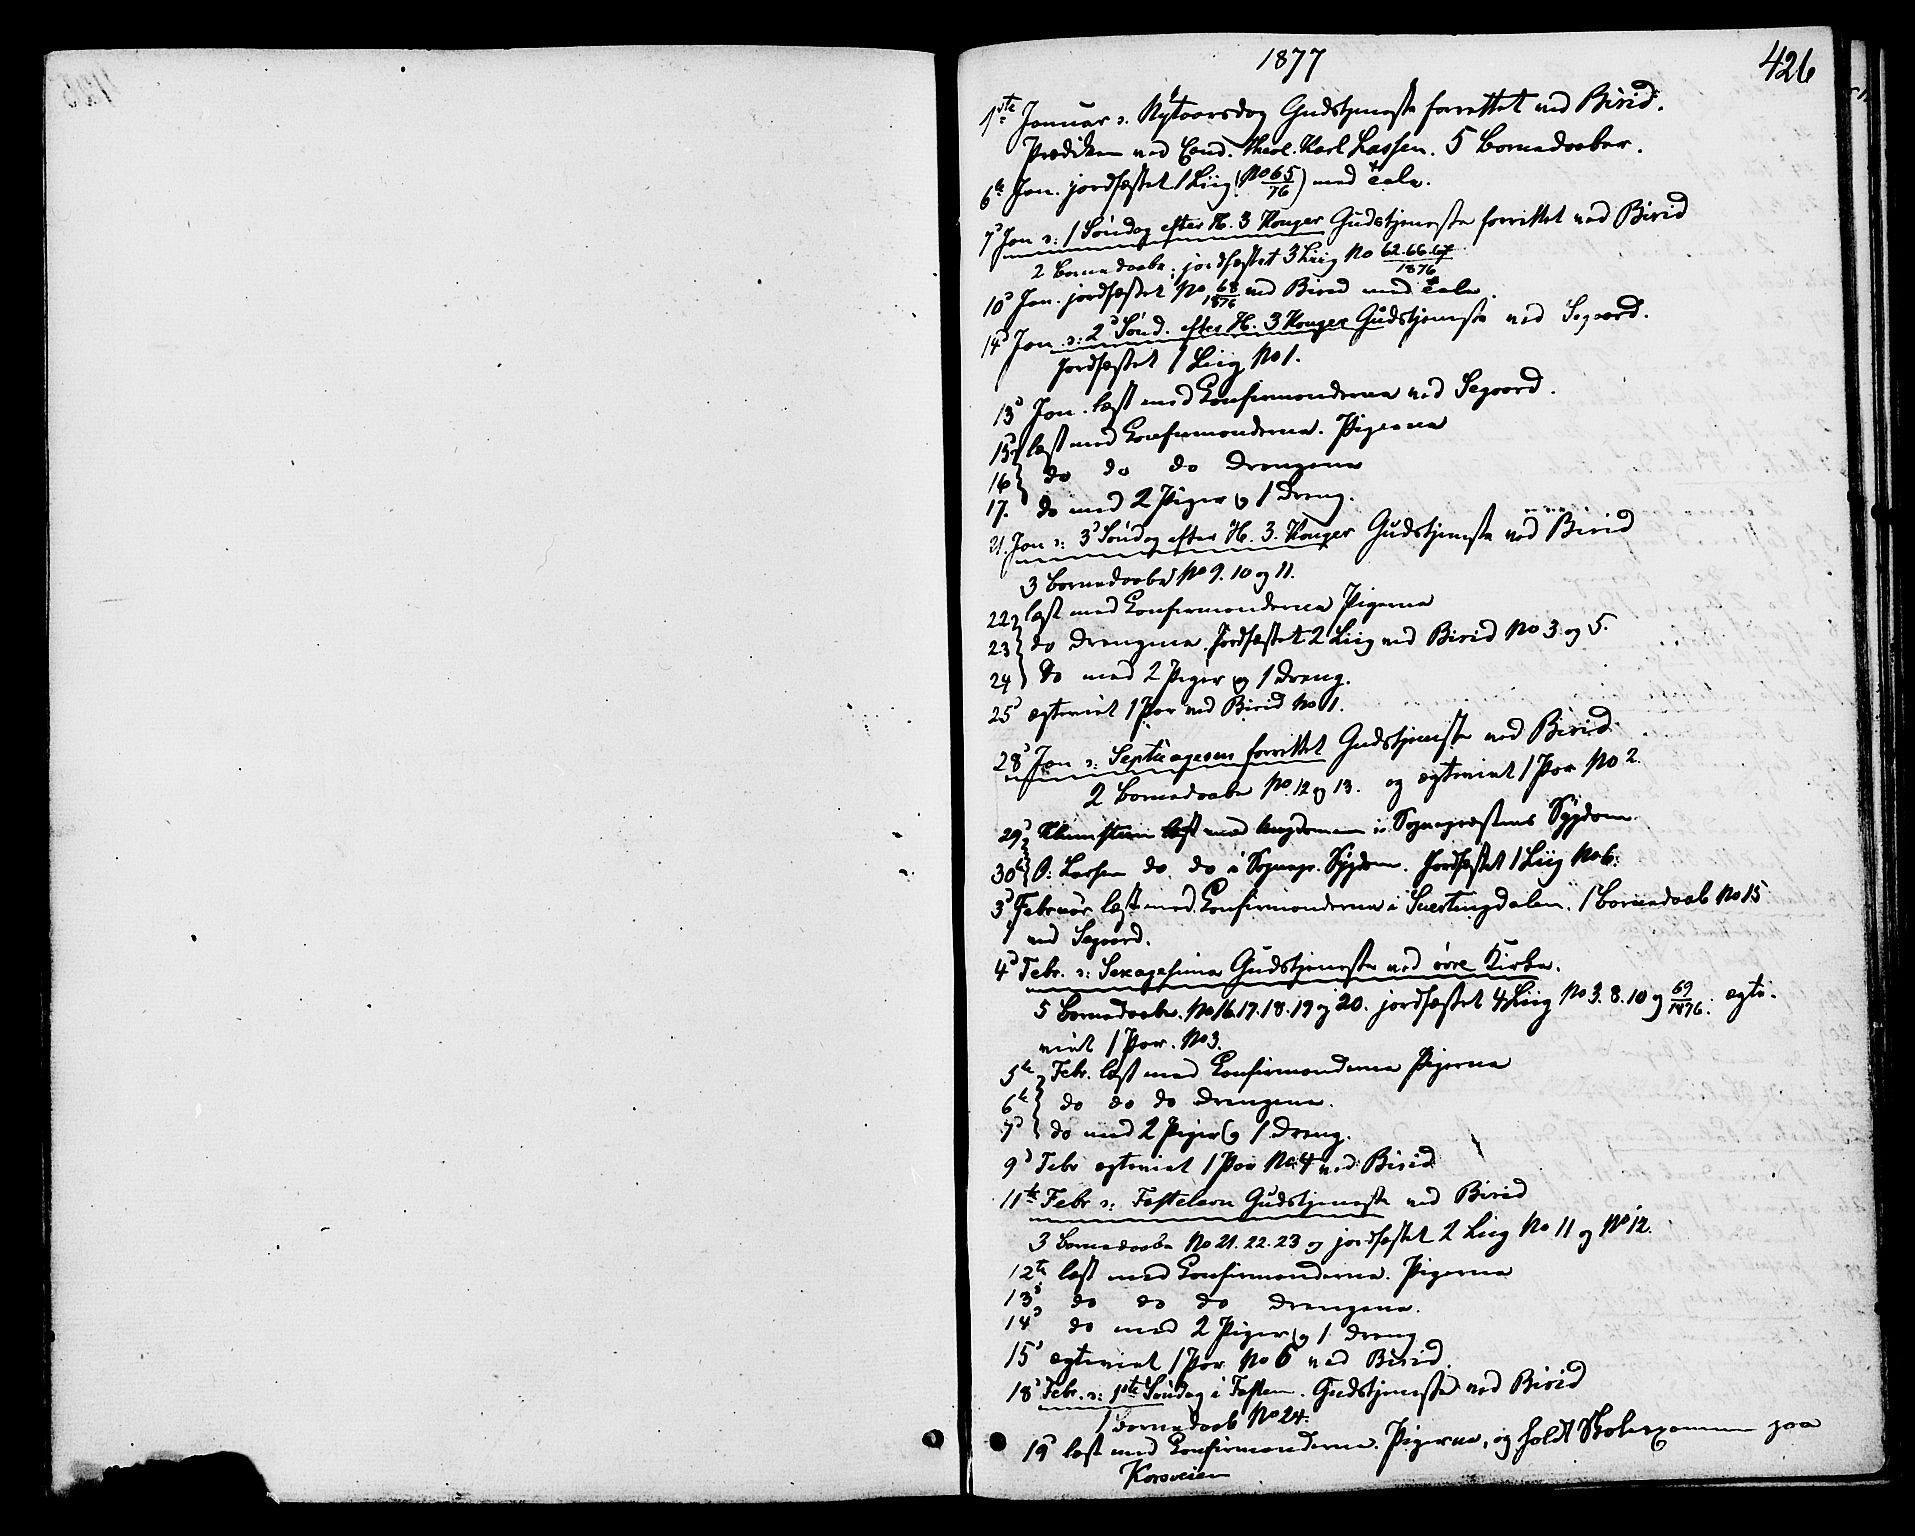 1877
426
1ste Januar ɔ: Nytaarsdag Gudstjeneste forrettet ved Birid.
Prædiken ved Cand. theol. Karl Lassen. 5 Barnedaaber.
6te Jan. jordfæstet 1 Liig (No 65/76) med Tale.
7d Jan ɔ: 1 Søndag efter H. 3 Konger Gudstjeneste forrettet ved Birid
2 Barnedaabe; jordfæstet 3 Liig No 62.66.67/1876
10d Jan. jordfæstet No 68/1876 ved Birid med Tale.
14d Jan ɔ: 2d Sønd. efter H. 3 Konger Gudstjeneste ved Segaard.
Jordfæstet 1 Liig No 1.
13d Jan. læst med Confirmanderne ved Segaard.
15 læst med Confirmanderne. Pigerne
16 do do do Drengene
17. do med 2 Piger og 1 Dreng.
21. Jan ɔ: 3d Søndag efter H. 3. Konger Gudstjeneste ved Birid
3 Barnedaabe No 9. 10 og 11.
22 læst med Confirmanderne Pigerne
23 do Drengene. Jordfæstet 2 Liig ved Birid No 3 og 5.
24 do med 2 Piger og 1 Dreng.
25d egteviet 1 Par ved Birid No 1.
28d Jan ɔ: Septuagesm forrettet Gudstjeneste ved Birid
2 Barnedaabe No. 12 og 13. og egteviet 1 Par No 2.
29d læst med Ungdommen i Sognepræstens Sygdom.
30te O. Larsen do do i Sognepr. Sygdom. Jordfæstet 1 Liig No 6.
3d Februar læst med Confirmanderne i Snertingdalen. 1 Barnedaab No 15
ved Segaard.
4d Febr. ɔ: Sexagesima Gudstjeneste ved øvre Kirke.
5 Barnedaabe. No 16.17.18.19 og 20. jordfæstet 4 Liig No 3. 8. 10 og 69/1876. egte-
viet 1 Par. No 3.
5te Febr. læst med Confirmanderne Pigerne
6te do do do Drengene.
7d do med 2 Piger og 1 Dreng.
9d Febr egteviet 1 Par No 4 ved Birid
11te Febr ɔ: Fastelavn Gudstjeneste ved Birid
3 Barnedaabe No 21. 22. 23 og jordfæstet 2 Liig No 11 og No 12.
12te læst med Confirmanderne. Pigerne
13d do do do Drengene.
14d do med 2 Piger og 1 Dreng
15d egteviet 1 Par No 5 ved Birid.
18d Febr. ɔ: 1ste Søndag i Fasten. Gudstjeneste ved Birid
1 Barnedaab No 24.
19d læst med Confirmanderne. Pigerne, og holdt Skoleexamen paa
Korsveien